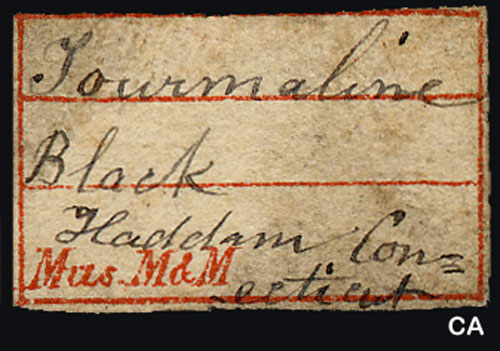 Tourmaline
Black
Haddam Con=
Mus. M&M
ecticut
CA